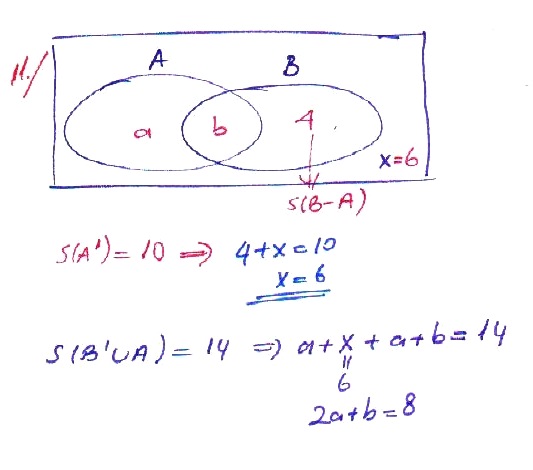 11./
A
B
a
b
4
x=6
S(B-A)
S(A')=10 ⇒ 4+x=10
x=6
S(B'∪A)=14 ⇒ a+x+a+b=14
=
6
2a+b=8